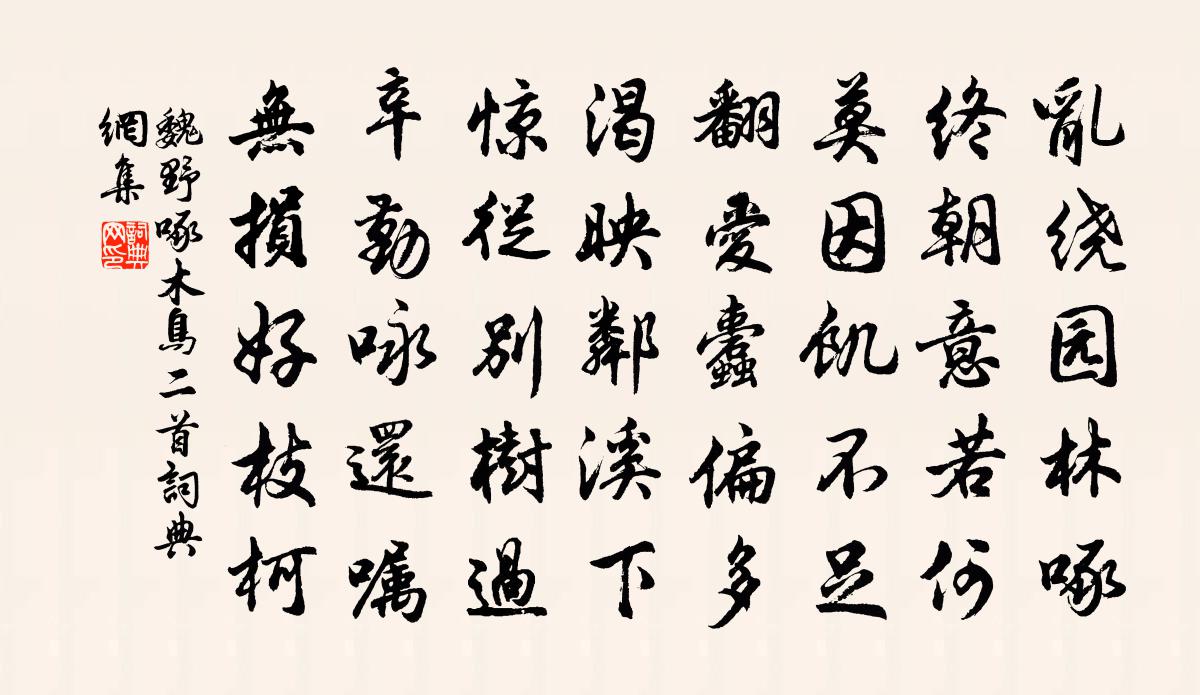 亂绕园林啄
终朝意若何
莫因飢不足
翻愛蠹偏多
渴映鄰溪下
惊從别樹過
辛勤咏還嘱
無損好枝柯
魏野啄木鳥二首詞典
網集
詞典网印